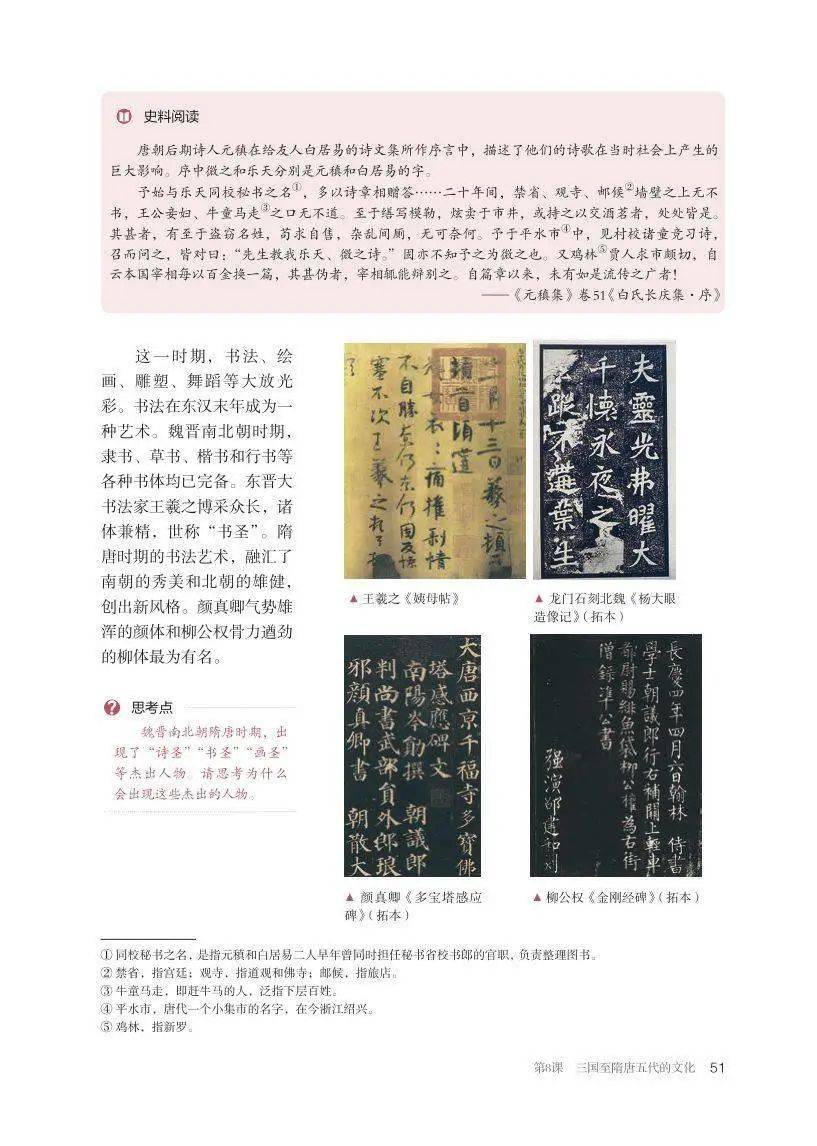 史料阅读
唐朝后期诗人元稹在给友人白居易的诗文集所作序言中，描述了他们的诗歌在当时社会上产生的
巨大影响。序中微之和乐天分别是元稹和白居易的字。
予始与乐天同校秘书之名①，多以诗章相赠答……二十年间，禁省、观寺、邮候②墙壁之上无不
书，王公妾妇、牛童马走③之口无不道。至于缮写模勒，炫卖于市井，或持之以交酒茗者，处处皆是。
其甚者，有至于盗窃名姓，苟求自售，杂乱间厕，无可奈何。予于平水市④中，见村校诸童竞习诗，
召而问之，皆对曰：“先生教我乐天、微之诗。”固亦不知予之为微之也。又鸡林⑤贾人求市颇切，自
云本国宰相每以百金换一篇，其甚伪者，宰相辄能辩别之。自篇章以来，未有如是流传之广者！
——《元稹集》卷51《白氏长庆集·序》
这一时期，书法、绘
画、雕塑、舞蹈等大放光
彩。书法在东汉末年成为一
种艺术。魏晋南北朝时期，
隶书、草书、楷书和行书等
各种书体均已完备。东晋大
书法家王羲之博采众长，诸
体兼精，世称“书圣”。隋
唐时期的书法艺术，融汇了
南朝的秀美和北朝的雄健，
创出新风格。颜真卿气势雄
浑的颜体和柳公权骨力遒劲
的柳体最为有名。
思考点
魏晋南北朝隋唐时期，出
现了“诗圣”“书圣”“画圣”
等杰出人物。请思考为什么
会出现这些杰出的人物。
十一月十三日羲之頓
首頓首頃遘
母哀痛摧剥情
不自勝奈何奈何因反惨
塞不次王羲之頓首頓
▲ 王羲之《姨母帖》
夫靈光弗曜大
千懷永夜之
蹤不遘葉生
▲ 龙门石刻北魏《杨大眼
造像记》（拓本）
大唐西京千福寺多寶佛
塔感應碑文
南陽岑勛撰 朝議郎
判尚書武部員外郎琅
邪顏真卿書 朝散大
▲ 颜真卿《多宝塔感应
碑》（拓本）
長慶四年四月六日翰林 侍書
學士朝議郎行右補闕上輕車
都尉賜緋魚袋柳公權為右街
僧錄準公書
强演邵建和刻
▲ 柳公权《金刚经碑》（拓本）
① 同校秘书之名，是指元稹和白居易二人早年曾同时担任秘书省校书郎的官职，负责整理图书。
② 禁省，指宫廷；观寺，指道观和佛寺；邮候，指旅店。
③ 牛童马走，即赶牛马的人，泛指下层百姓。
④ 平水市，唐代一个小集市的名字，在今浙江绍兴。
⑤ 鸡林，指新罗。
第8课 三国至隋唐五代的文化 51